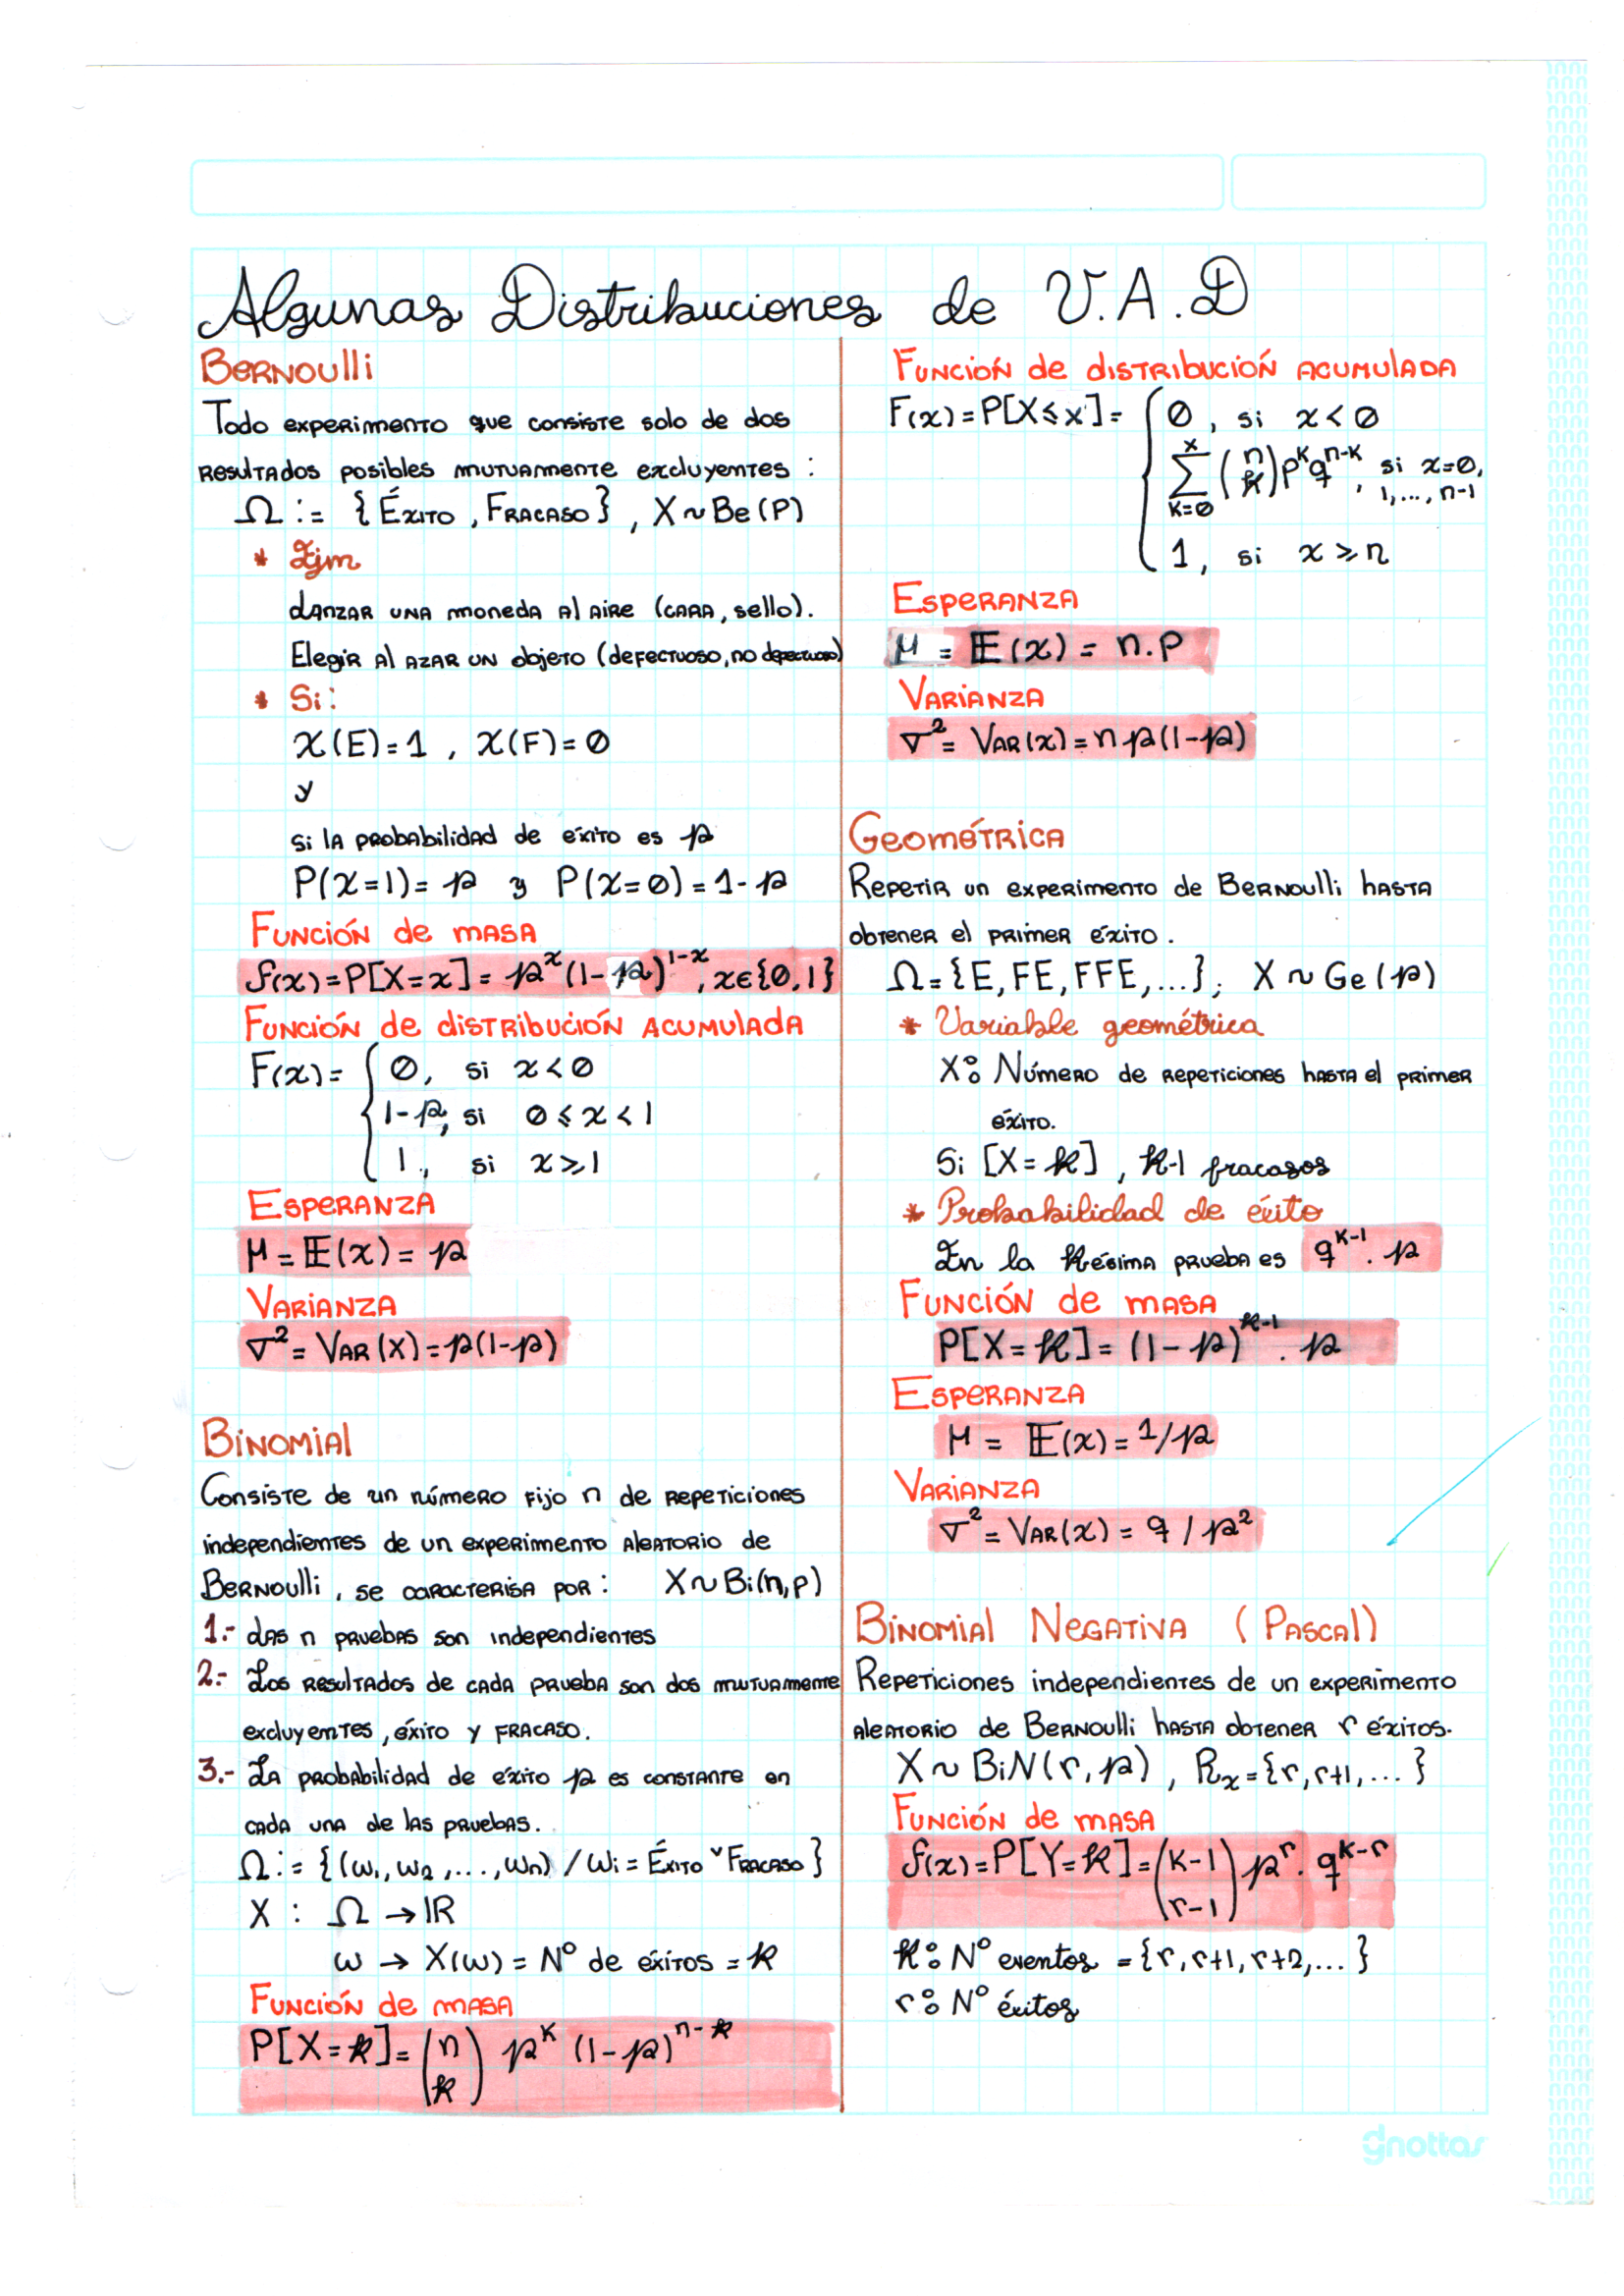 Algunas Distribuciones de V.A.D
Bernoulli
Todo experimento que consiste solo de dos
resultados posibles mutuamente excluyentes :
Ω := {Éxito , Fracaso} , X ~ Be(P)
* Ejm
Lanzar una moneda al aire (cara, sello).
Elegir al azar un objeto (defectuoso, no defectuoso)
* Si:
X(E)=1 , X(F)=0
y
Si la probabilidad de éxito es p
P(X=1)= p y P(X=0)=1-p
Función de masa
f(x)=P[X=x]= p^x (1-p)^(1-x), x∈{0,1}
Función de distribución acumulada
F(x)= { 0, si x<0
1-p, si 0≤x<1
1, si x≥1
Esperanza
μ = E(x) = p
Varianza
σ² = Var(X)=p(1-p)
Binomial
Consiste de un número fijo n de repeticiones
independientes de un experimento aleatorio de
Bernoulli, se caracterisa por: X~Bi(n,p)
1.- Las n pruebas son independientes
2.- Los resultados de cada prueba son dos mutuamente
excluyentes, éxito y fracaso.
3.- La probabilidad de éxito p es constante en
cada una de las pruebas.
Ω := {(ω₁, ω₂, ..., ωn) / ωi = Éxito ᵛ Fracaso}
X : Ω → IR
ω → X(ω) = N° de éxitos = k
Función de masa
P[X=k]= (n k) p^k (1-p)^(n-k)
Función de distribución acumulada
F(x)=P[X≤x]= { 0, si x<0
∑_{K=0}^{x} (n k) p^k q^(n-k), si x=0,
1,..., n-1
1, si x≥n
Esperanza
μ = E(x) = n.p
Varianza
σ² = Var(x)=np(1-p)
Geométrica
Repetir un experimento de Bernoulli hasta
obtener el primer éxito.
Ω={E, FE, FFE, ...}; X ~ Ge(p)
* Variable geométrica
X: Número de repeticiones hasta el primer
éxito.
Si [X=k] , k-1 fracasos
* Probabilidad de éxito
En la késima prueba es q^(k-1) . p
Función de masa
P[X=k]= (1-p)^(k-1) . p
Esperanza
μ = E(x)=1/p
Varianza
σ² = Var(x) = q / p²
Binomial Negativa (Pascal)
Repeticiones independientes de un experimento
aleatorio de Bernoulli hasta obtener r éxitos.
X ~ BiN(r,p) , Rx={r, r+1, ...}
Función de masa
f(x)=P[Y=k]=(k-1 r-1) p^r . q^(k-r)
k: N° eventos = {r, r+1, r+2, ...}
r: N° éxitos
gnottas